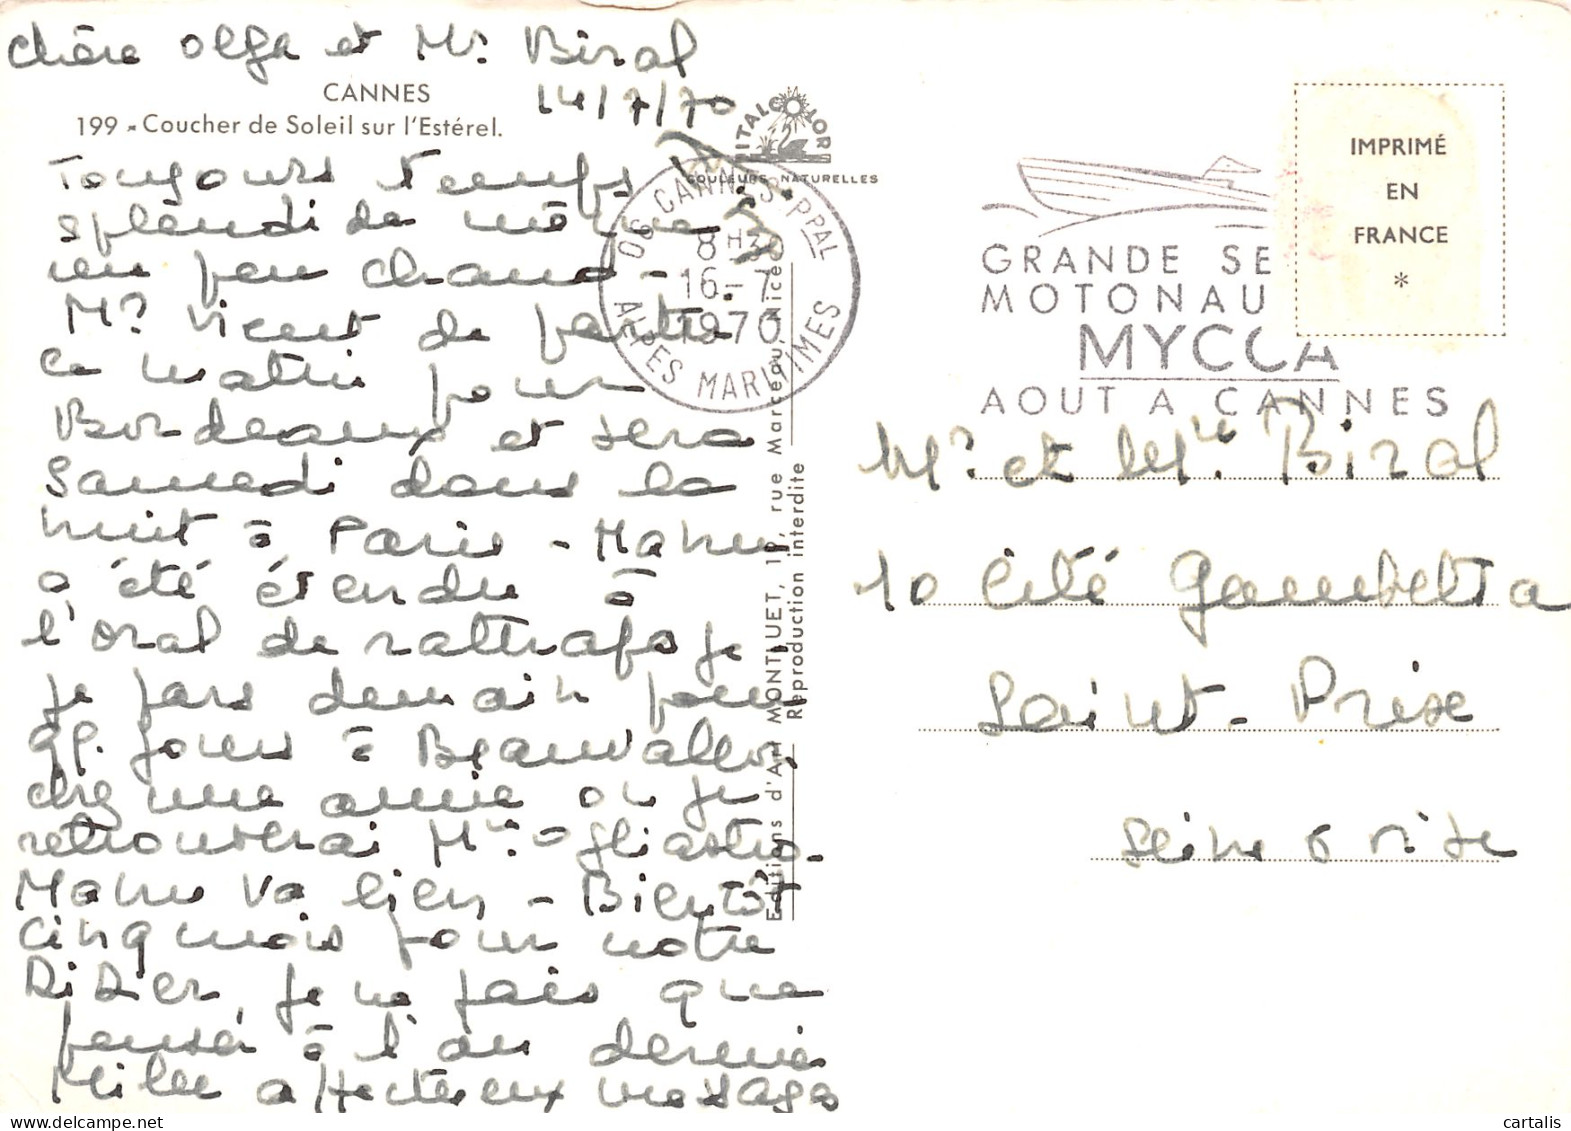 Chère Olga et Mr. Biral
14/7/70
CANNES
199 - Coucher de Soleil sur l'Estérel.
Toujours temps
splendide même
un peu chaud -
Mr Vicent de partir
ce matin pour
Bordeaux et sera
Samedi dans la
nuit à Paris - Manu
a été étendu à
l'oral de rattrapage
je pars demain pour
qq. jours à Beauvallon,
chez une amie où je
retrouverai Me. Ogliastro.
Manu va bien - Bientôt
cinq mois pour notre
Didier, je ne fais que
penser à l'an dernier
Mille affectueux messages
ITALCOLOR
COULEURS NATURELLES
06 CANNES PPAL
8H30
16-7
1970
ALPES MARITIMES
Editions d'Art MONTLUET, 19, rue Marceau, Nice
Reproduction interdite
GRANDE SE
MOTONAU
MYCCA
AOUT A CANNES
IMPRIMÉ
EN
FRANCE
*
Mr et Me Biral
10 Cité Gambetta
Saint-Prix
Seine & Oise
cartalis